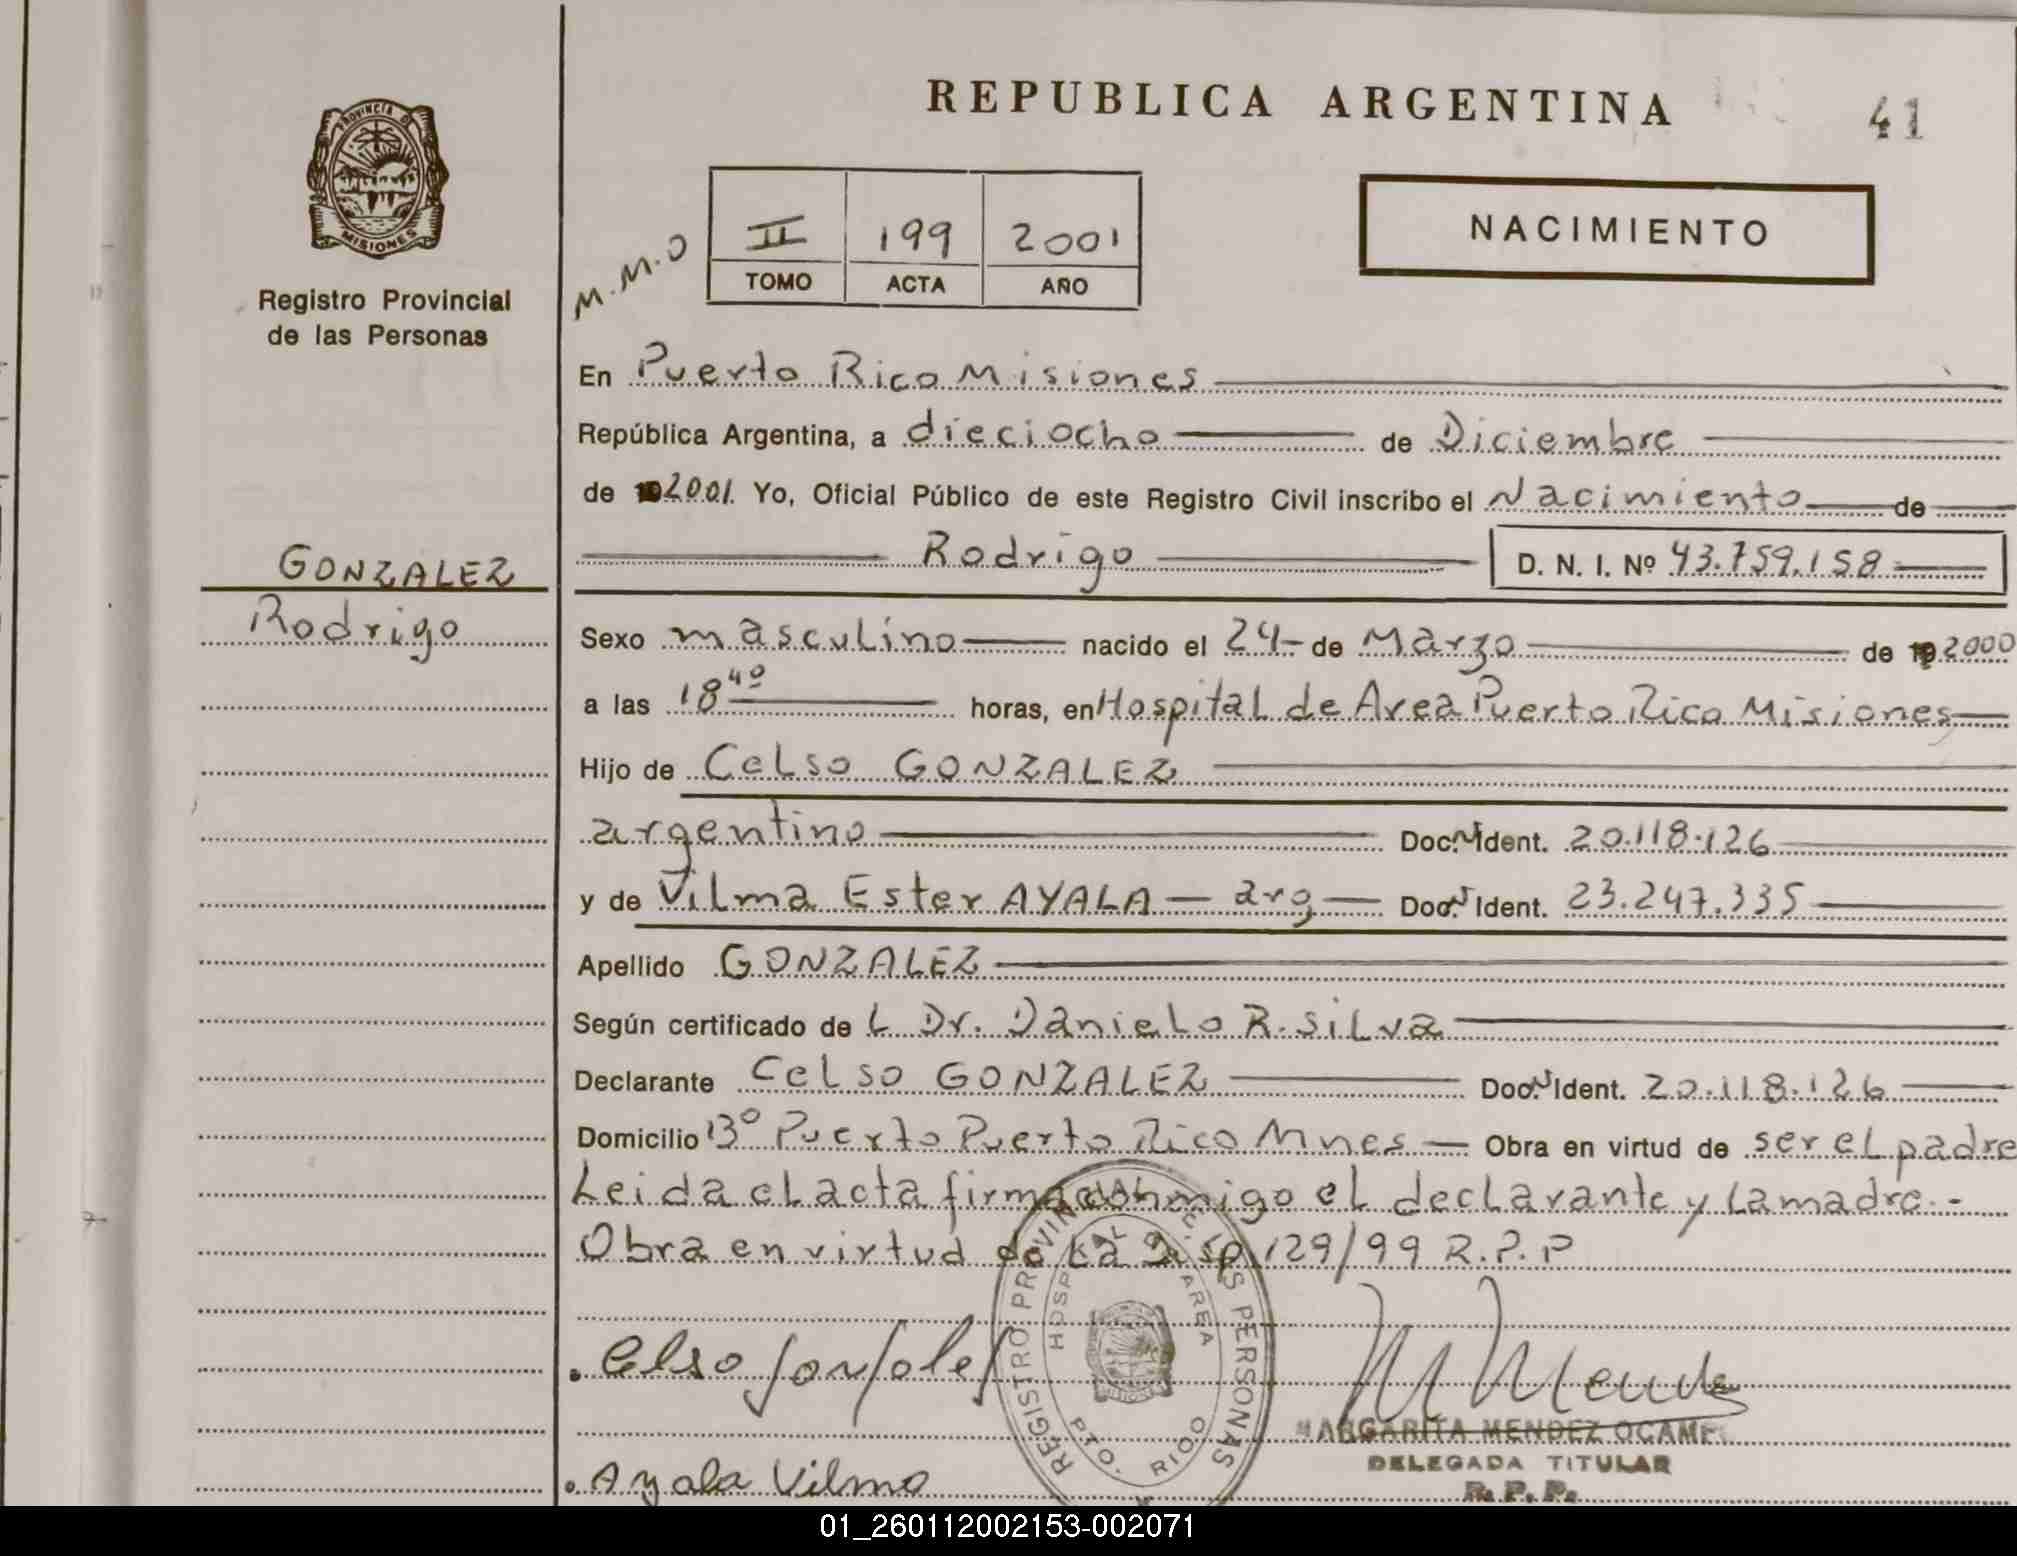 REPUBLICA ARGENTINA
41
PROVINCIA DE
MISIONES
Registro Provincial
de las Personas
M.M.O
II 199 2001
TOMO ACTA AÑO
NACIMIENTO
En Puerto Rico Misiones
República Argentina, a dieciocho de Diciembre
de 2001. Yo, Oficial Público de este Registro Civil inscribo el Nacimiento de
GONZALEZ
Rodrigo
Rodrigo D. N. I. Nº 43.759.158
Sexo masculino nacido el 24 de Marzo de 2000
a las 18 40 horas, en Hospital de Area Puerto Rico Misiones
Hijo de Celso GONZALEZ
argentino Doc. Ident. 20.118.126
y de Vilma Ester AYALA — arg — Doc. Ident. 23.247.335
Apellido GONZALEZ
Según certificado de L Dr. Danielo R. Silva
Declarante Celso GONZALEZ Doc. Ident. 20.118.126
Domicilio 13º Puerto Puerto Rico Mnes — Obra en virtud de ser el padre
Leida el acta firma conmigo el declarante y la madre.-
Obra en virtud de La Disp. 129/99 R.P.P
REGISTRO PROVINCIAL DE LAS PERSONAS
HOSPITAL DE AREA
PTO. RICO
Celso Gonzalez
MARGARITA MENDEZ OCAMP
DELEGADA TITULAR
R. P. P.
Ayala Vilma
01_260112002153-002071